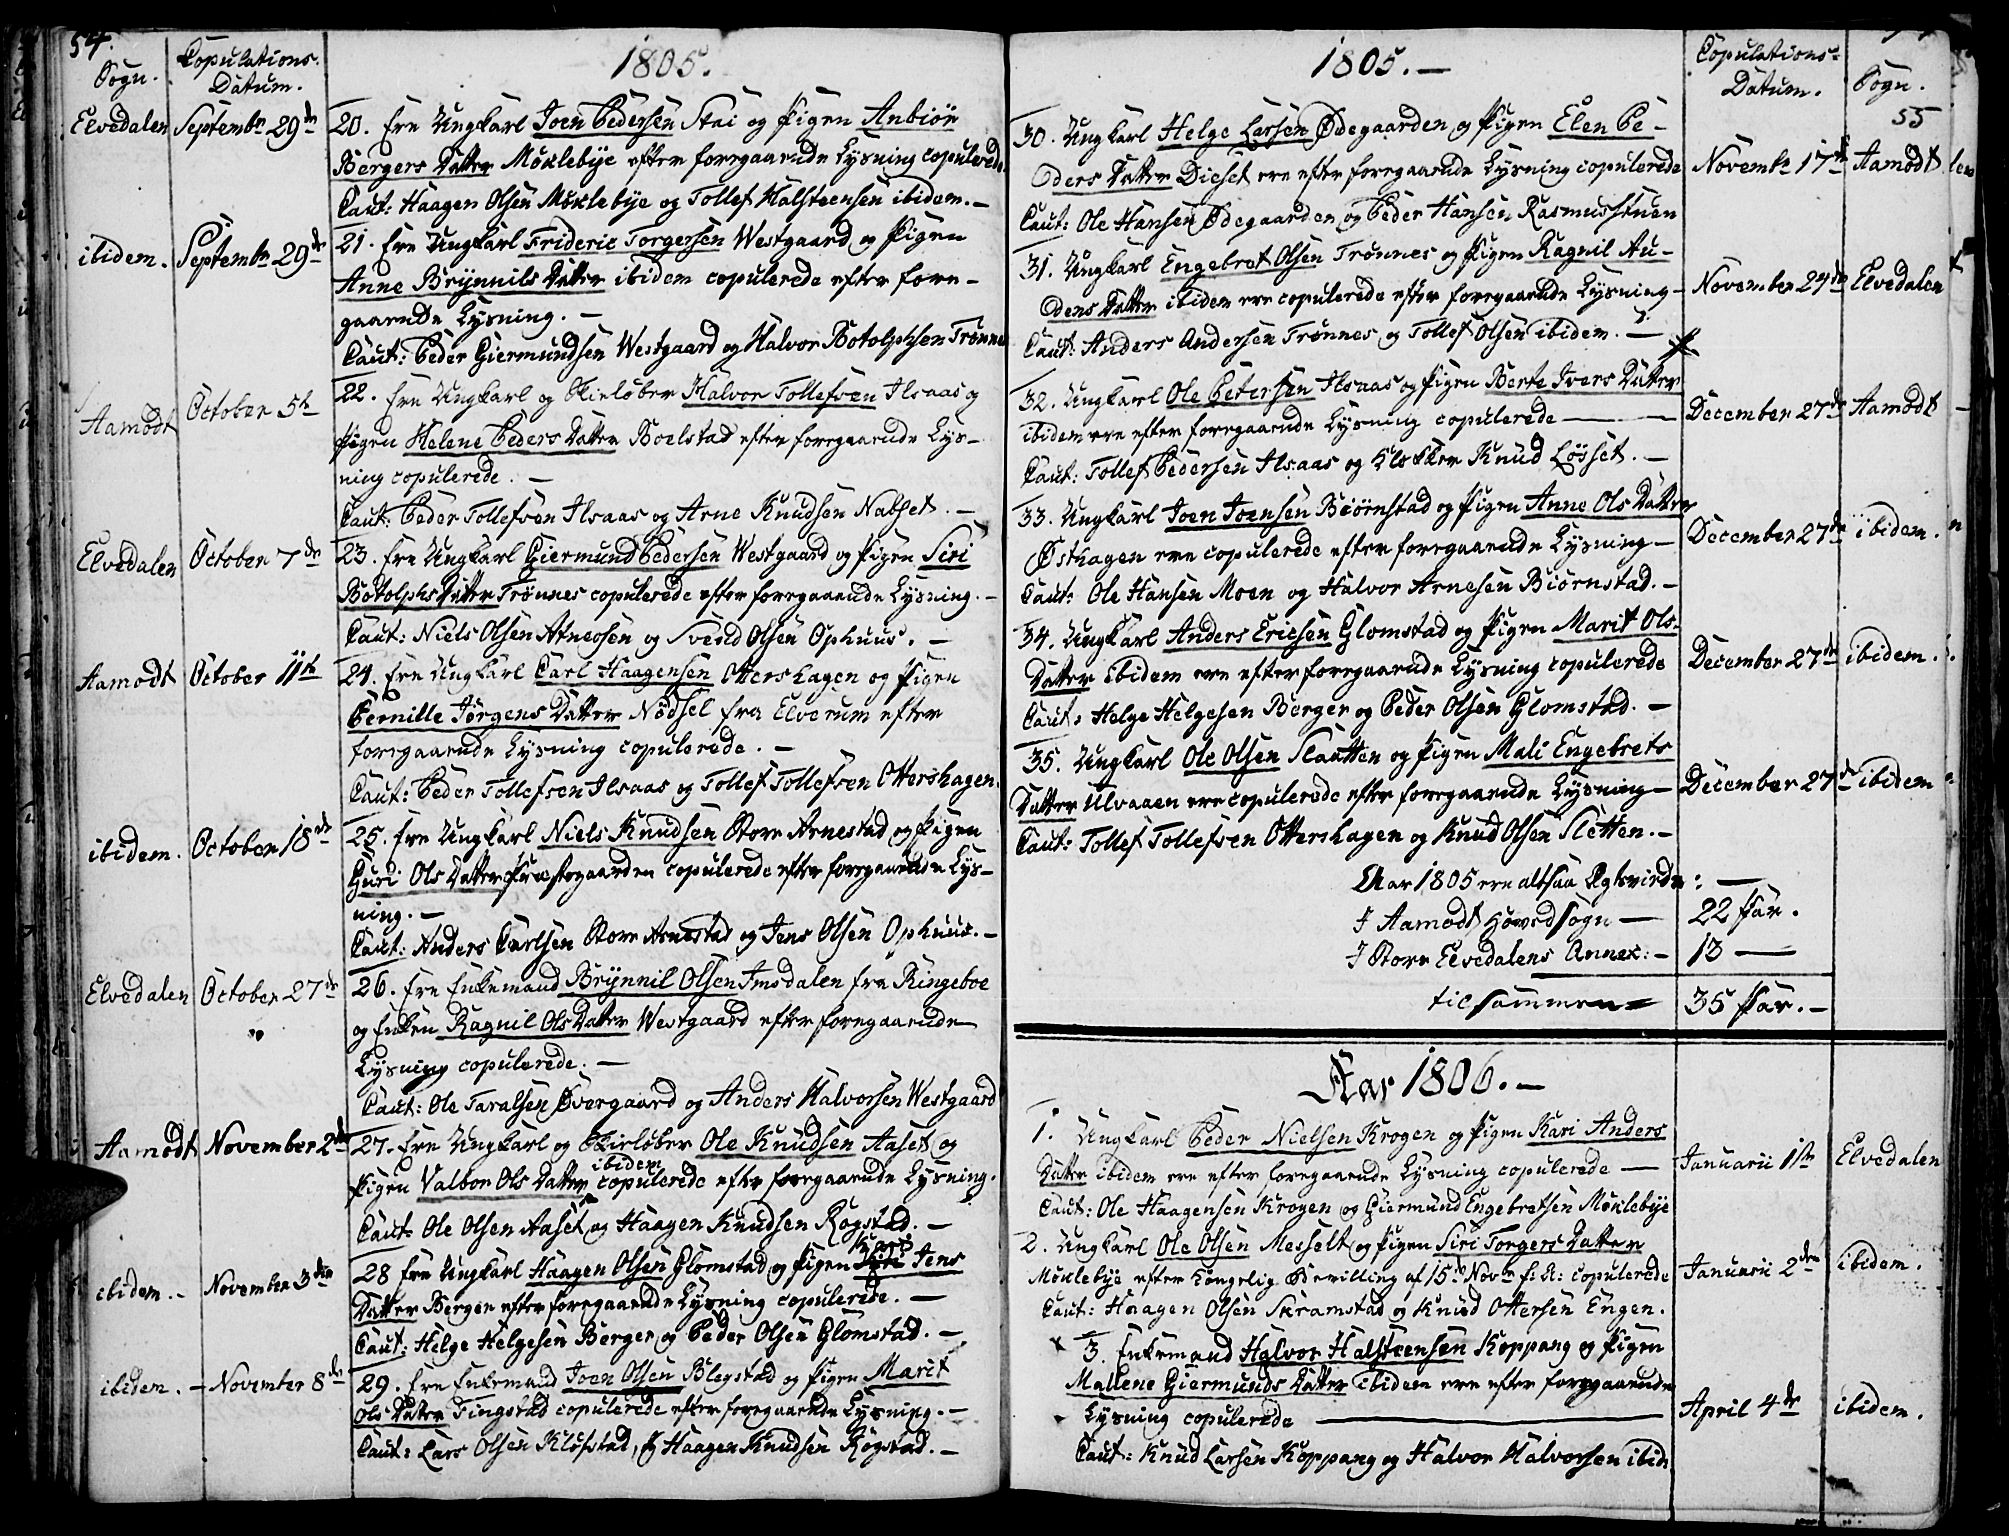 54.
Sogn. Copulations-
Datum.
1805.
Elvedalen Septembr 29de 20. Ere Ungkarl Joen Pedersen Stai og Pigen Anbiør
Bergers Datter Møklebye efter foregaaende Lysning copulerede.
Caut: Haagen Olsen Møklebye og Tollef Halsteensen ibidem. —
ibidem. Septembr 29de 21. Ere Ungkarl Frideric Torgersen Westgaard og Pigen
Anne Brynnils Datter ibidem copulerede efter fore-
gaaende Lysning. —
Caut: Peder Giermundsen Westgaard og Halvor Botolphsen Trønnes
Aamodt October 5te 22. Ere Ungkarl og Skieløber Halvor Tollefsen Ilsaas og
Pigen Helene Peders Datter Boelstad efter foregaaende Lys-
ning copulerede. —
Caut: Peder Tollefsen Ilsaas og Arne Knudsen Nabset. —
Elvedalen October 7de 23. Ere Ungkarl Giermund Pedersen Westgaard og Pigen Siri
Botolphs Datter Trønnes copulerede efter foregaaende Lysning. —
Caut: Niels Olsen Atneosen og Svend Olsen Ophuus. —
Aamodt October 11te 24. Ere Ungkarl Carl Haagensen Ottershagen og Pigen
Pernille Jørgens Datter Nødsel fra Elverum efter
foregaaende Lysning copulerede. —
Caut: Peder Tollefsen Ilsaas og Tollef Tollefsen Ottershagen.
ibidem. October 18de 25. Ere Ungkarl Niels Knudsen Store Arnestad og Pigen
Guri Ols Datter Præstegaarden copulerede efter foregaaende Lys-
ning. —
Caut: Anders Carlsen Store Arnestad og Jens Olsen Ophuus. —
Elvedalen October 27de 26. Ere Enkemand Brynnil Olsen Imsdalen fra Ringeboe
og Enken Ragnil Ols Datter Westgaard efter foregaaende
Lysning copulerede. —
Caut: Ole Taralsen Øvergaard og Anders Halvorsen Westgaard
Aamodt November 2de 27. Ere Ungkarl og Skieløber Ole Knudsen Aaset og
ibidem
Pigen Valbor Ols Datter copulerede efter foregaaende Lysning.
Caut: Ole Olsen Aaset og Haagen Knudsen Rogstad. —
ibidem. — November 3die 28 Ere Ungkarl Haagen Olsen Glomstad og Pigen Jens
Datter Berger efter foregaaende Lysning copulerede. —
Caut: Helge Helgesen Berger og Peder Olsen Glomstad. —
ibidem. — November 8de 29. Ere Enkemand Joen Olsen Blegstad og Pigen Marit
Ols Datter Tingstad copulerede efter foregaaende Lysning. —
Caut: Lars Olsen Kløfstad, og Haagen Knudsen Rogstad. —
1805. —
Copulations-
Datum. Sogn.
55
30. Ungkarl Helge Larsen Ødegaarden og Pigen Elen Pe-
ders Datter Dieset ere efter foregaaende Lysning copulerede Novembr 17de Aamodt
Caut: Ole Hansen Ødegaarden og Peder Hansen Rasmusstuen
31. Ungkarl Engebret Olsen Trønnes og Pigen Ragnil Au-
dens Datter ibidem ere copulerede efter foregaaende Lysning — November 24de Elvedalen
Caut: Anders Andersen Trønnes og Tollef Olsen ibidem. —
32. Ungkarl Ole Petersen Ilsaas og Pigen Berte Ivers Datter
ibidem ere efter foregaaende Lysning copulerede — December 27de Aamodt
Caut: Tollef Pedersen Ilsaas og Klokker Knud Løsset. —
33. Ungkarl Joen Joensen Biørnstad og Pigen Anne Ols Datter
Østhagen ere copulerede efter foregaaende Lysning — December 27de ibidem.
Caut: Ole Hansen Moen og Halvor Arnesen Biørnstad. —
34. Ungkarl Anders Ericsen Glomstad og Pigen Marit Ols-
Datter ibidem ere efter foregaaende Lysning copulerede December 27de ibidem.
Caut: Helge Helgesen Berger og Peder Olsen Glomstad. —
35. Ungkarl Ole Olsen Slaatten og Pigen Mali Engebrets
Datter Ulvaaen ere copulerede efter foregaaende Lysning — December 27de ibidem
Caut: Tollef Tollefsen Ottershagen og Knud Olsen Sletten. —
Aar 1805 ere altsaa Egteviede: —
I Aamodt Hovedsogn — 22 Par.
I Store Elvedalens Annex: — 13 —
tilsammen 35 Par. —
Aar 1806. —
1. Ungkarl Peder Nielsen Krogen og Pigen Kari Anders
Datter ibidem ere efter foregaaende Lysning copulerede — Januarii 1ste Elvedalen
Caut: Ole Haagensen Krogen og Giermund Engebretsen Møklebye
2. Ungkarl Ole Olsen Messelt og Pigen Siri Torgers Datter
Møklebye efter Kongelig Bevilling af 15de Novbr f: A: copulerede Januarii 2den ibidem.
Caut: Haagen Olsen Skramstad og Knud Ottersen Engen.
3. Enkemand Halvor Halsteensen Koppang og Pigen
Mallene Giermunds Datter ibidem ere efter foregaaende
Lysning copulerede — April 4de ibidem.
Caut: Knud Larsen Koppang og Halvor Halvorsen ibid: